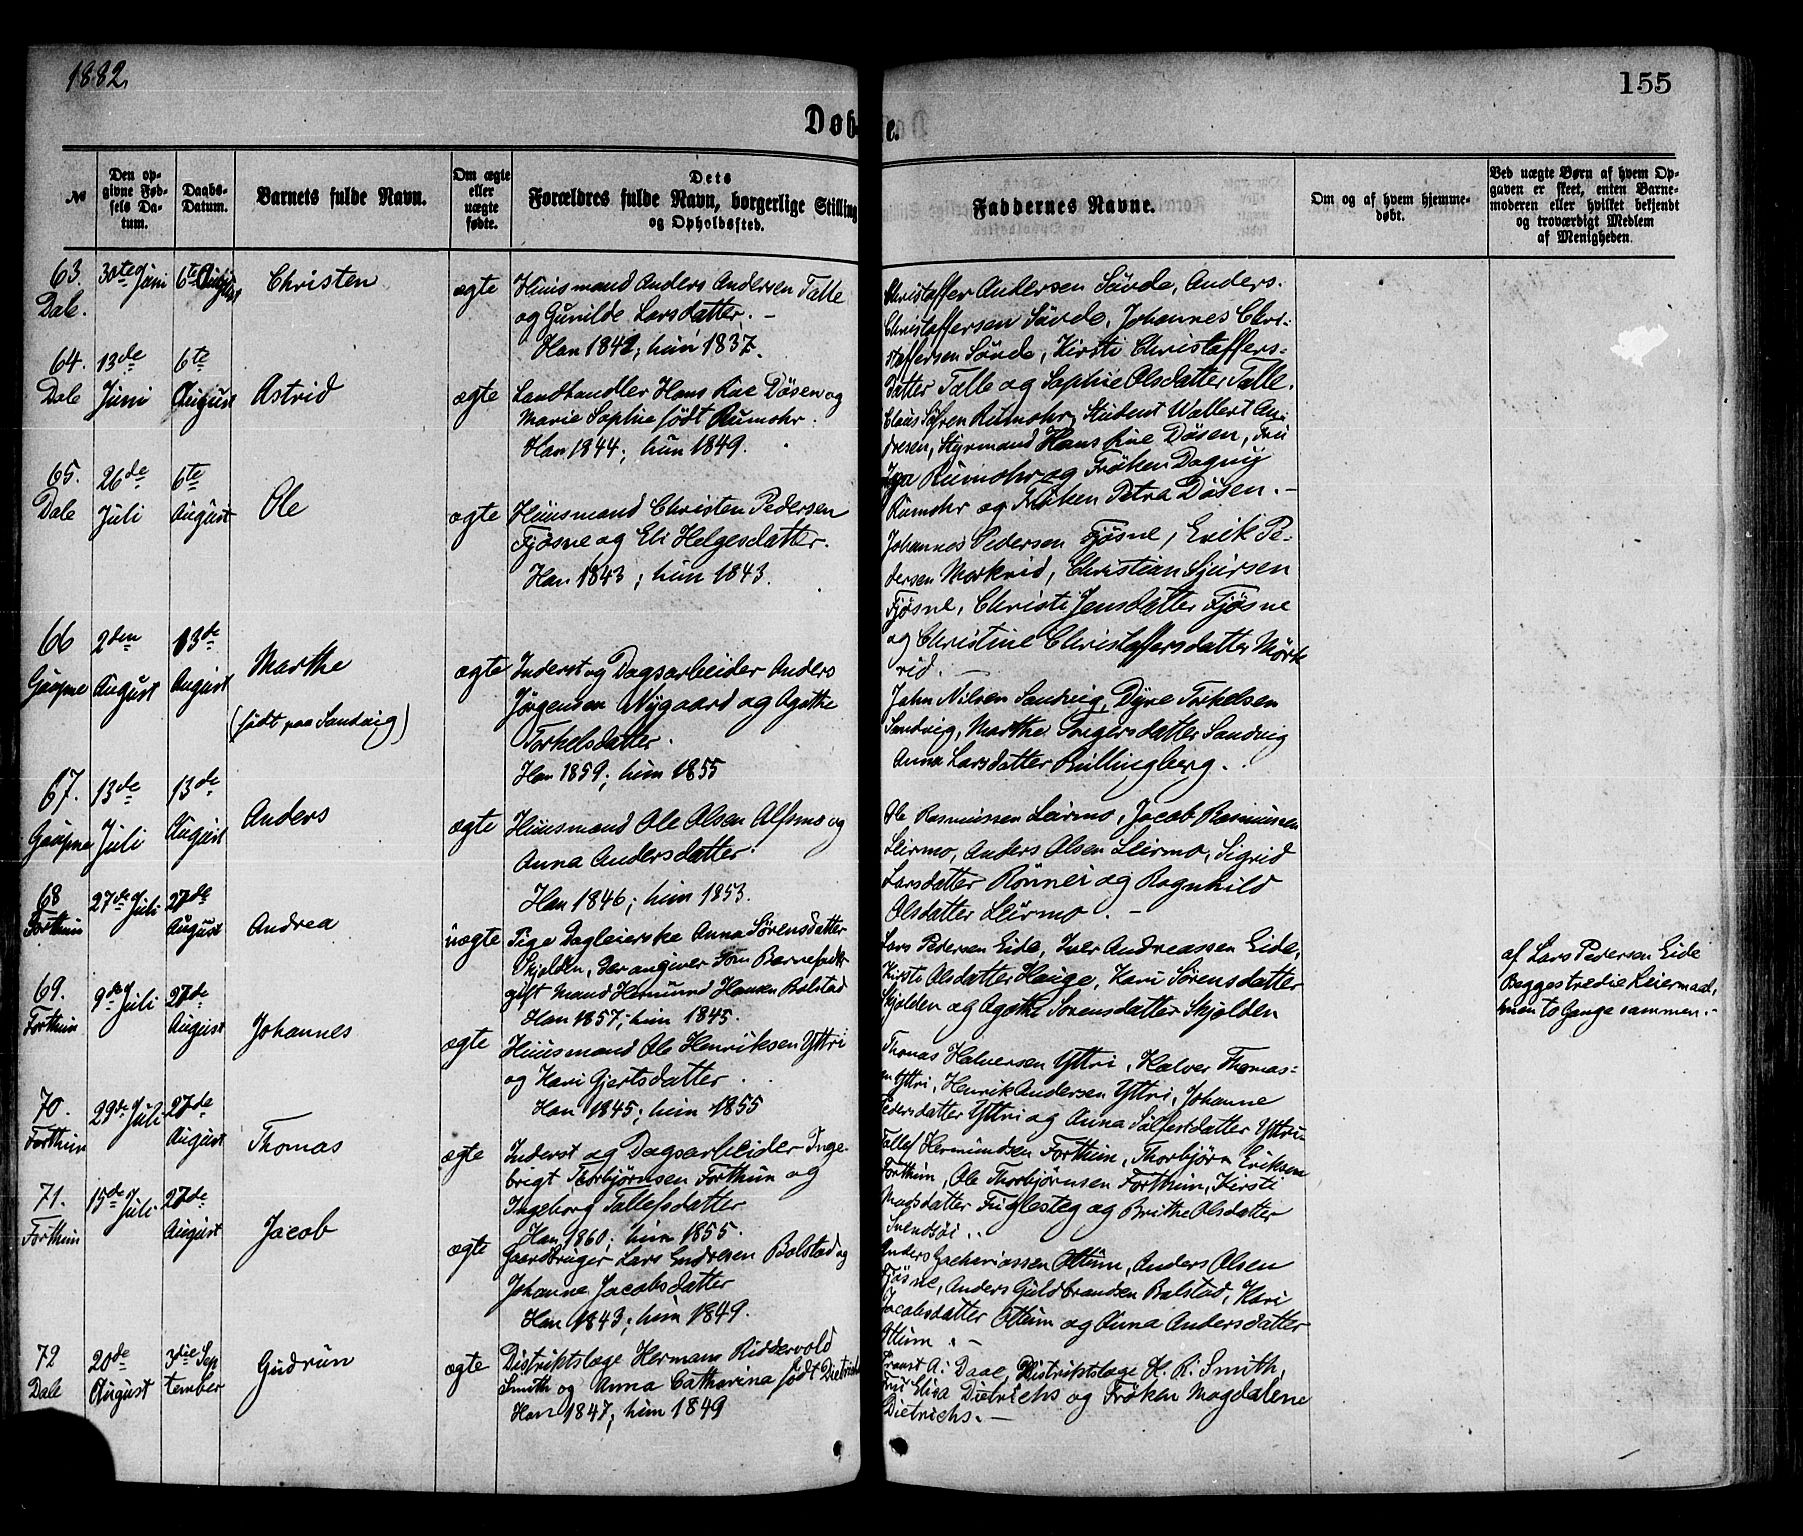 1882.
155
Døbte.
№
Den opgivne Fødsels Datum.
Daabs-Datum.
Barnets fulde Navn.
Om ægte eller uægte fødte.
Dets Forældres fulde Navn, borgerlige Stilling og Opholdssted.
Faddernes Navne.
Om og af hvem hjemmedøbt.
Ved uægte Børn af hvem Opgaven er skeet, enten Barnemoderen eller hvilket bekjendt og troværdigt Medlem af Menigheden.
63. Dale.
30te Juni
6te August
Christen
ægte
Huusmand Anders Andersen Talle
og Gunilde Larsdatter. –
Han 1842; hun 1837.
Christaffer Andersen Sövde, Anders
Christaffersen Sövde, Johannes Chri-
staffersen Sövde, Kirsti Christaffers-
datter Talle og Sophie Olsdatter Talle.
64. Dale
13de Juni
6te August
Astrid
ægte
Landhandler Hans Rue Døsen og
Marie Sophie født Rumohr.
Han 1844; hun 1849.
Claus Sören Rumohr, Student Wallert An-
dresen, Styrmand Hans Rue Døsen, Fru
Rumohr og Frøken Dagny
Rumohr og Frøken Petra Døsen. –
65. Dale
26de Juli
6te August
Ole
ægte
Huusmand Christen Pedersen
Fjøsne og Eli Helgesdatter.
Han 1843; hun 1843.
Johannes Pedersen Fjøsne, Erik Pe-
dersen Morkrid, Christian Sjursen
Fjøsne, Christi Jensdatter Fjøsne
og Christine Christaffersdatter Mørk
rid. –
66 Gaupne
2den August
13de August
Marthe
(født paa Sandvig)
ægte
Inderst og Dagsarbeider Anders
Jørgensen Nygaard og Agathe
Torkelsdatter.
Han 1859; hun 1855
John Nilsen Sandvig, Dyre Torkelsen
Sandvig, Marthe Sandvig
Anna Larsdatter Bullingberg.
67. Gaupne
13de Juli
13de August
Anders
ægte
Huusmand Ole Olsen Alsmo og
Anna Andersdatter.
Han 1846; hun 1853.
Ole Rasmussen Leirmo, Jacob Rasmussen
Leirmo, Anders Olsen Leirmo, Sigrid
Larsdatter Rönnei og Ragnhild
Olsdatter Leirmo. –
68 Forthun
27de Juli
27de August
Andrea
uægte
Pige Anna Sørensdatter
Skjolden, der angiver som Barnefader
gift Mand Hermund Hansen Bolstad
Han 1857; hun 1845.
Lars Pedersen Eide, Iver Andreassen Eide,
Kirsti Olsdatter Hauge, Kari Sørensdatter
Skjolden og Agathe Sørensdatter Skjolden
af Lars Pedersen Eide
Begges tredie Leiermaal,
men to Gange sammen. –
69. Forthun
9de Juli
27de August
Johannes
ægte
Huusmand Ole Henriksen Yttri
og Kari Gjertsdatter.
Han 1845; hun 1855
Thomas Halversen Yttri, Halver Thomas-
en Yttri, Henrik Andersen Yttri, Johanne
Pedersdatter Yttri og Anna Salfestdatter Yttri
70. Forthun
29de Juli
27de August
Thomas
ægte
Inderst og Dagsarbeider Inge-
brigt Thorbjørnsen Forthun og
Ingeborg Tollefsdatter
Han 1860; hun 1855.
Tollef Hermundsen Forthun, Thorbjørn Eriksen
Forthun, Ole Thorbjørnsen Forthun, Kirsti
Madsdatter Fuglesteg og Brithe Olsdatter
Svendsøi.
71. Forthun
15de Juli
27de August
Jacob
ægte
Gaardbruger Lars Endresen Bolstad og
Johanne Jacobsdatter
Han 1843; hun 1849.
Anders Zachariassen Ottum, Anders Olsen
Fjøsne, Anders Guldbrandsen Bolstad, Kari
Jacobsdatter Ottum og Anna Andersdatter
Ottum. –
72 Dale
20de August
3die September
Gudrun
ægte
Distriktslæge Hermann Riddervold
Smith og Anna Catharina født Dietrichs
Han 1847; hun 1849
Provst A. Daae, Distriktslæge H. R. Smith,
Fru Elisa Dietrichs og Frøken Magdalene
Dietrichs. –